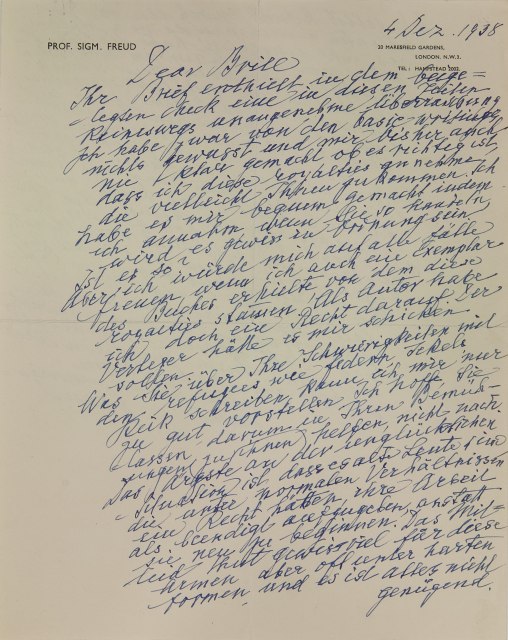 4 Dez. 1938
PROF. SIGM. FREUD
20 MARESFIELD GARDENS,
LONDON. N.W.3.
TEL: HAMPSTEAD 2002.
Dear Brill
Ihr Brief enthielt in dem beige=
legten Check eine in diesen Zeiten
Keineswegs unangenehme Überraschung
Ich habe zwar von den Basic Writings
nichts gewusst und mir bisher auch
nie klar gemacht ob es richtig ist,
dass ich diese royalties annehme
die vielleicht Ihnen zukommen. Ich
habe es mir bequem gemacht indem
ich annahm, wenn Sie so handeln,
wird es gewiss in Ordnung sein.
Ist es so?
Aber ich würde mich auf alle Fälle
freuen, wenn ich auch ein Exemplar
des Buches erhielte von dem diese
royalties stammen. Als Autor habe
ich doch ein Recht darauf. Der
Verleger hätte es mir schicken
sollen.
Was Sie über Ihre Schwierigkeiten mit
den refugees wie Federn, Jekels
Reik schreiben, kann ich mir nur
zu gut vorstellen. Ich hoffe, Sie
lassen darum in Ihren Bemüh-
ungen, ihnen zu helfen, nicht nach.
Das Ärgste an der unglücklichen
Situation ist, dass es alte Leute sind
die unter normalen Verhältnissen
ein Recht hätten, ihre Arbeit
als beendigt aufzugeben, anstatt
sie neu zu beginnen. Das Mit=
leid thut gewiss viel für diese
Armen aber oft unter harten
Formen und es ist alles nicht
genügend.